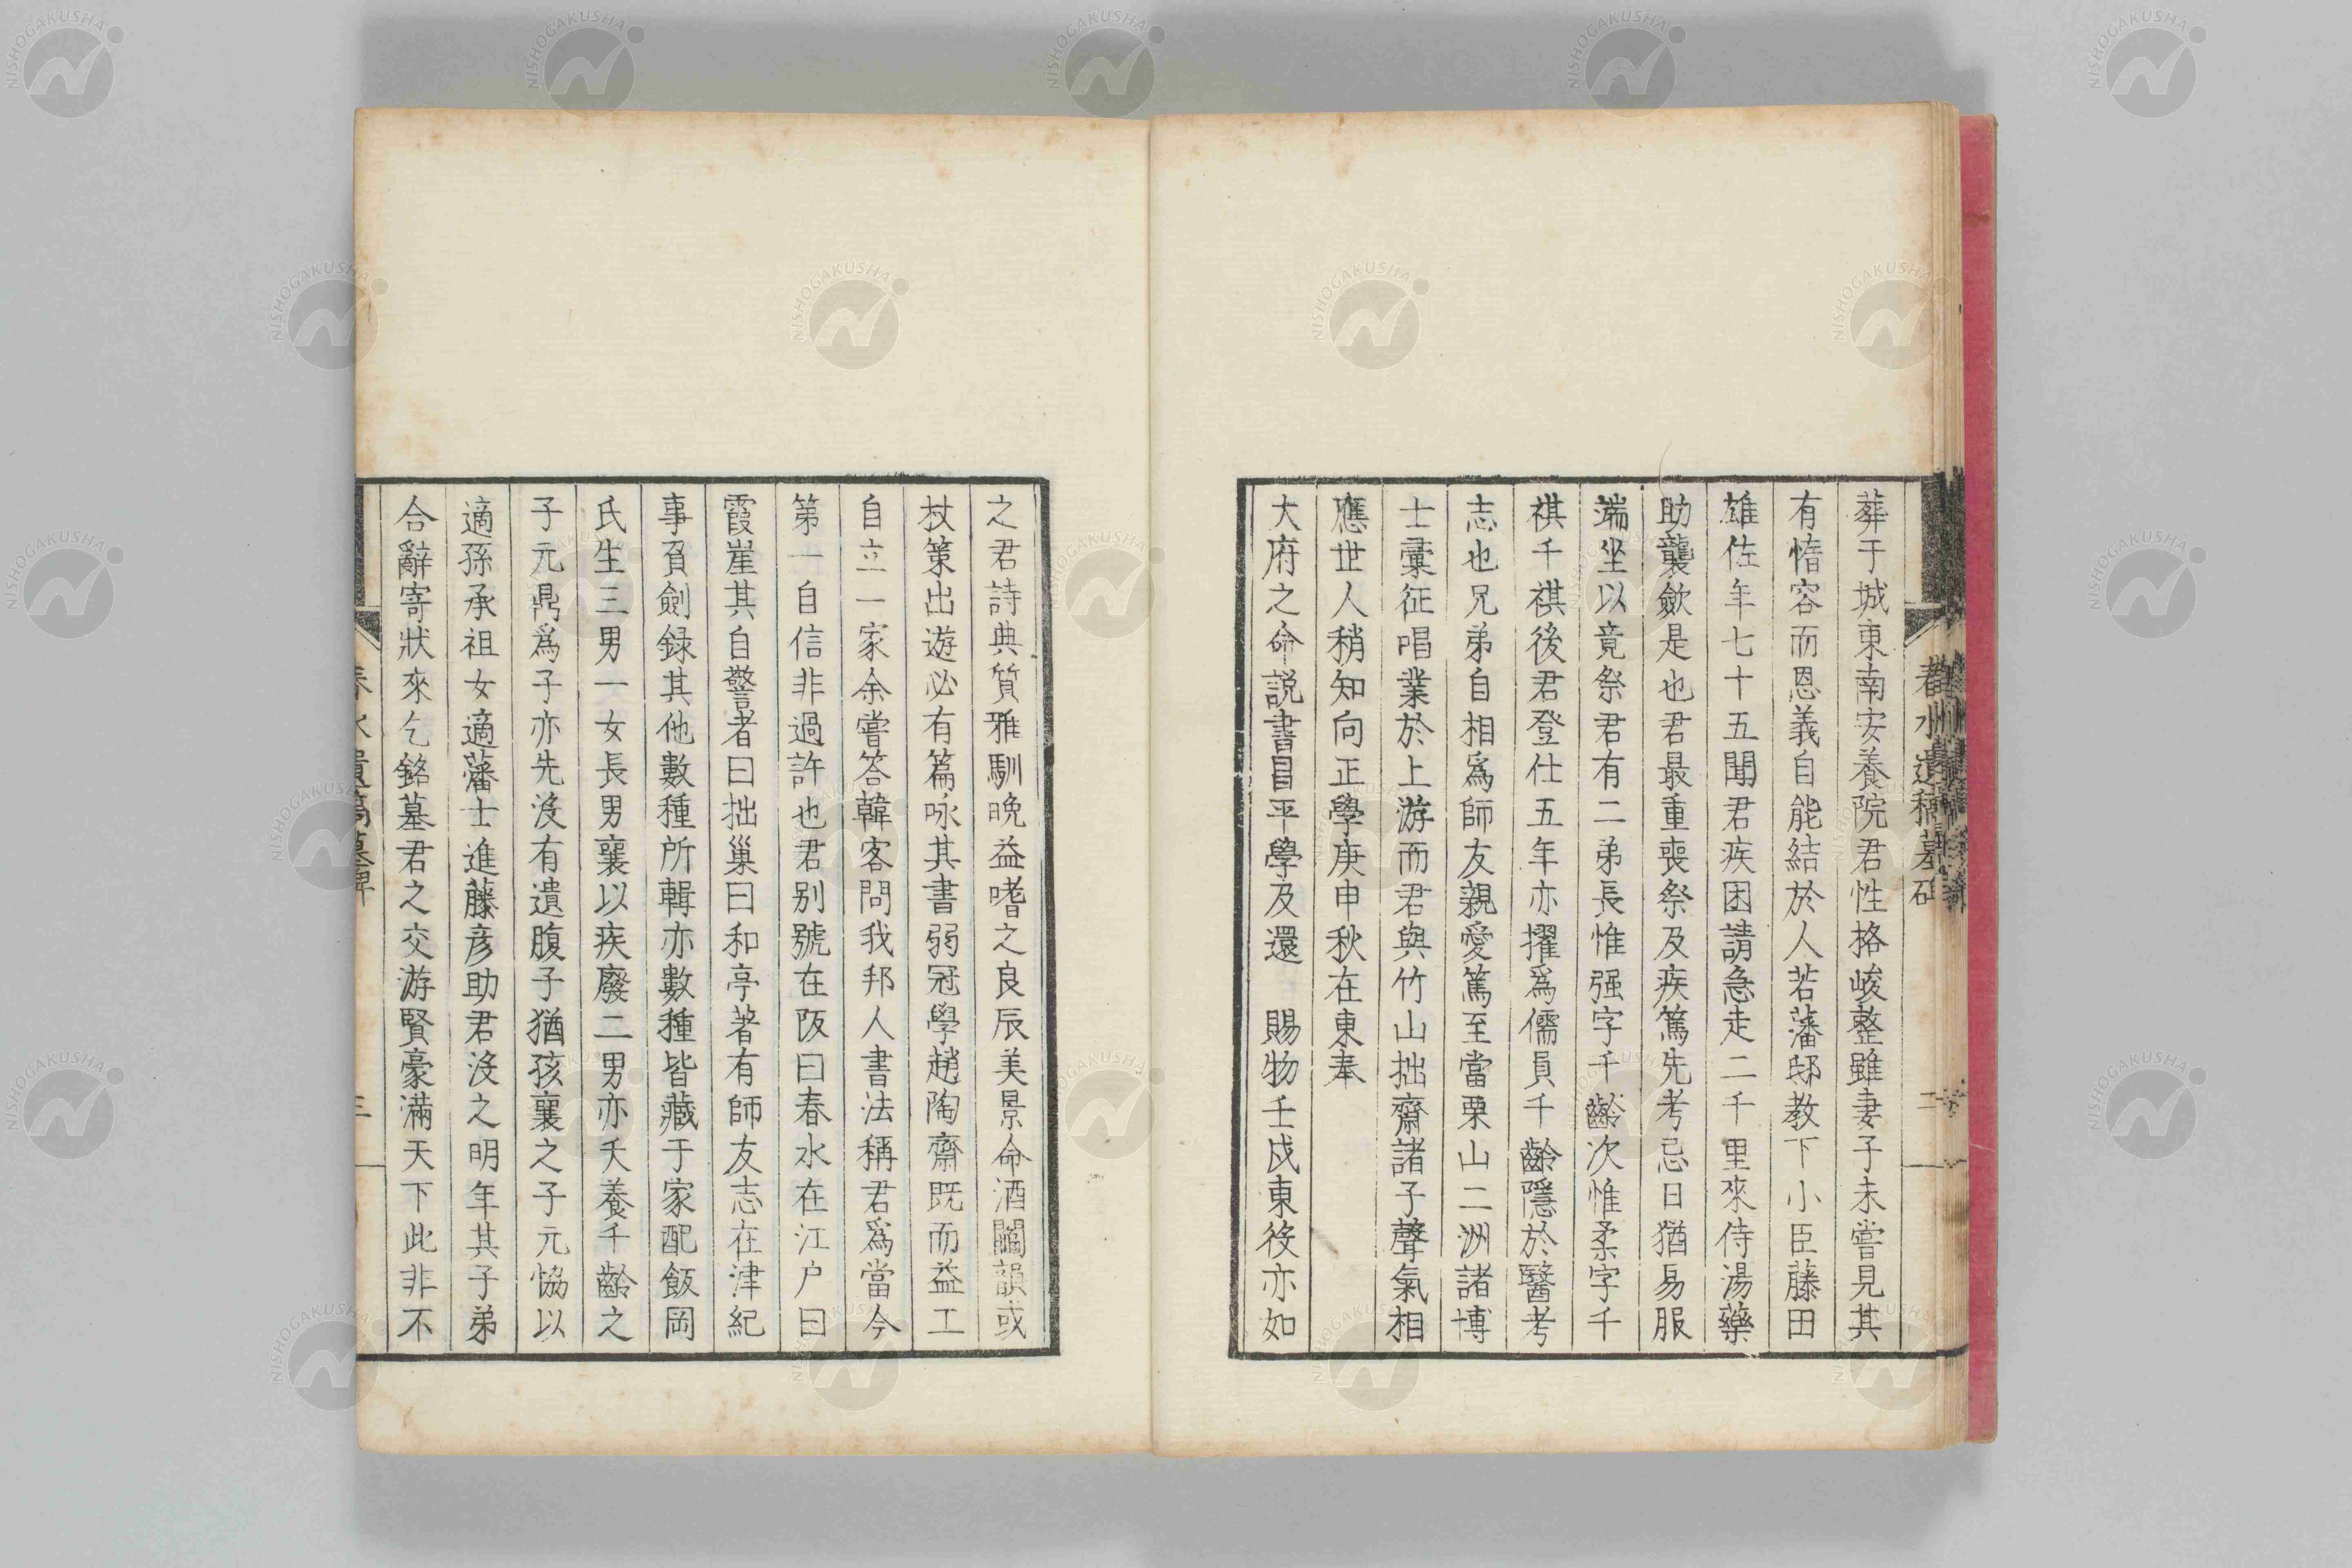 葬于城東南安養院君性格峻整雖妻子未嘗見其
有惰容而恩義自能結於人若藩邸教下小臣藤田
雄佐年七十五聞君疾困請急走二千里來侍湯藥
助襲斂是也君最重喪祭及疾篤先考忌日猶易服
端坐以竟祭君有二弟長惟强字千齡次惟柔字千
祺千祺後君登仕五年亦擢爲儒員千齡隱於醫考
志也兄弟自相爲師友親愛篤至當栗山二洲諸博
士彙征唱業於上游而君與竹山拙齋諸子聲氣相
應世人稍知向正學庚申秋在東奉
大府之命説書昌平學及還　賜物壬戌東役亦如
之君詩典質雅馴晩益嗜之良辰美景命酒鬮韻或
杖策出遊必有篇咏其書弱冠學趙陶齋既而益工
自立一家余嘗答韓客問我邦人書法稱君爲當今
第一自信非過許也君别號在阪曰春水在江户曰
霞崖其自警者曰拙巢曰和亭著有師友志在津紀
事負劍録其他數種所輯亦數種皆藏于家配飯岡
氏生三男一女長男襄以疾廢二男亦夭養千齡之
子元鼎爲子亦先沒有遺腹子猶孩襄之子元協以
適孫承祖女適藩士進藤彦助君沒之明年其子弟
合辭寄狀來乞銘墓君之交游賢豪滿天下此非不
春水遺稿墓碑
三
春水遺稿墓碑
二
NISHOGAKUSHA